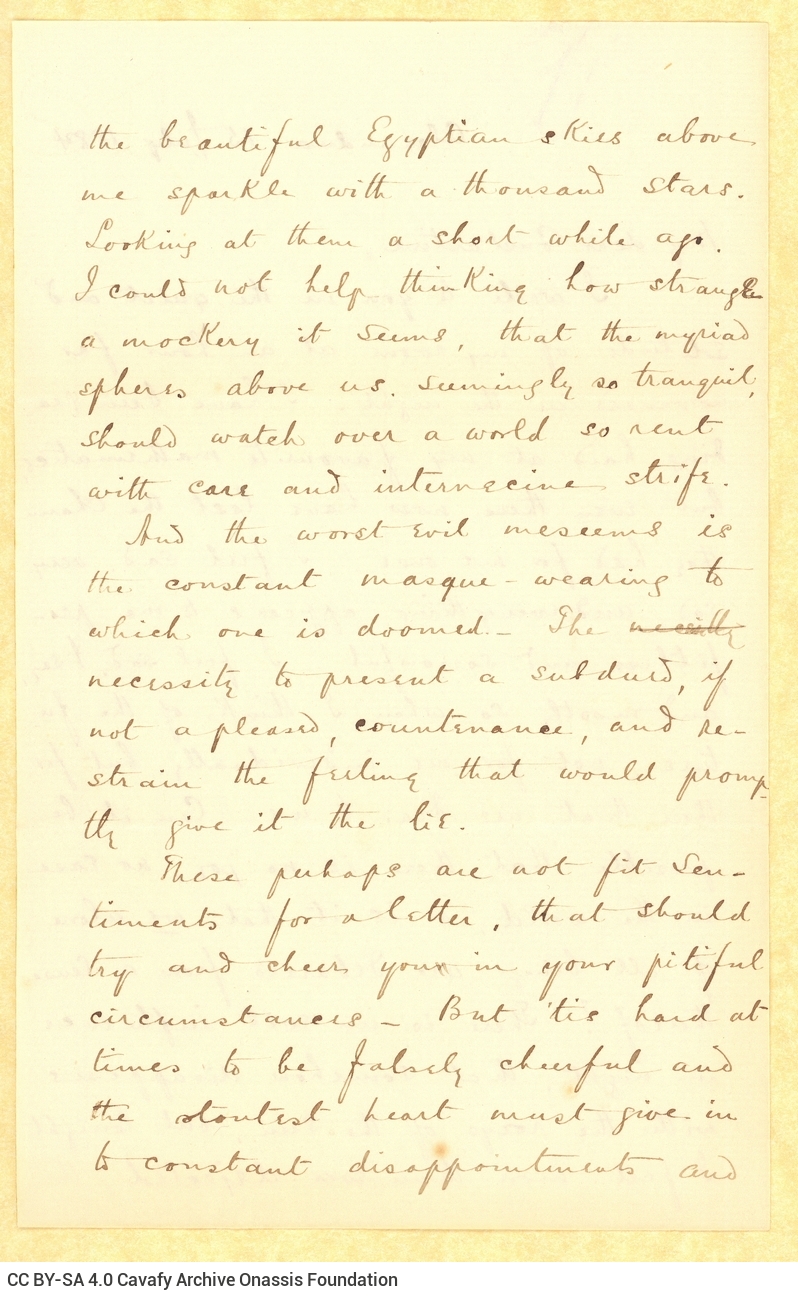 the beautiful Egyptian skies above
me sparkle with a thousand stars.
Looking at them a short while ago.
I could not help thinking how strange
a mockery it seems, that the myriad
spheres above us. seemingly so tranquil,
should watch over a world so rent
with care and internecine strife.
And the worst evil meseems is
the constant masque-wearing to
which one is doomed - The
necessity to present a subdued, if
not a pleased, countenance, and re-
strain the feeling that would promp-
tly give it the lie.
These perhaps are not fit sen-
timents for a letter, that should
try and cheer you in your pitiful
circumstances - But 'tis hard at
times to be falsely cheerful and
the stoutest heart must give in
to constant disappointments and
CC BY-SA 4.0 Cavafy Archive Onassis Foundation